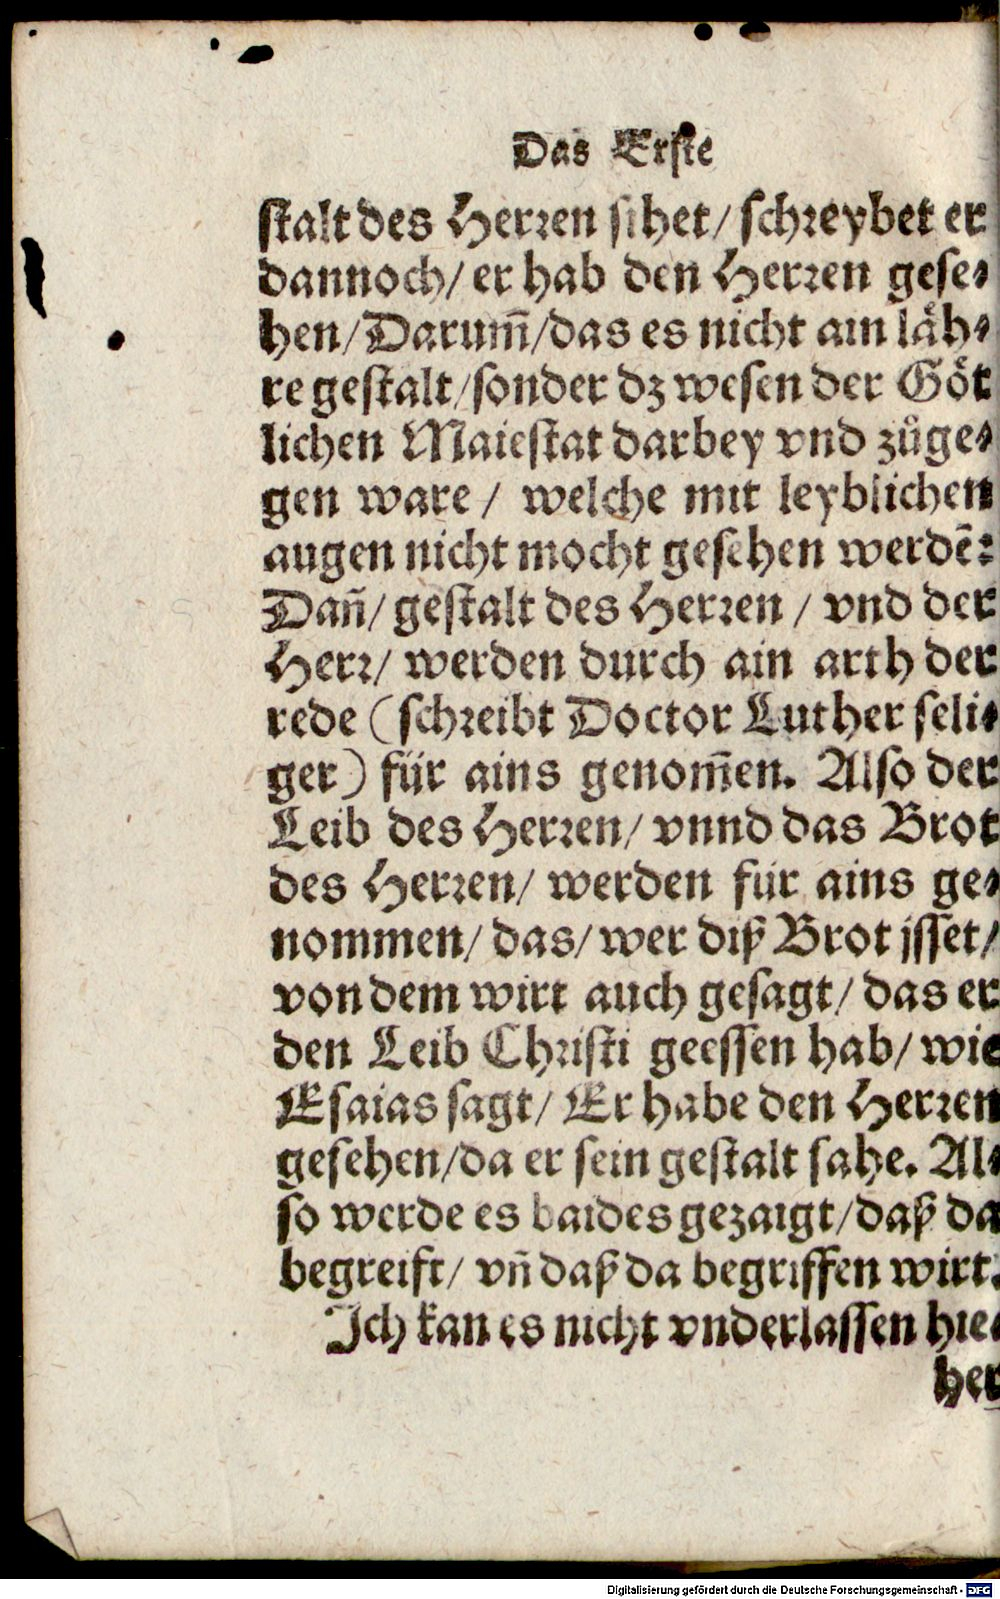 Das Erste
ſtalt des Herꝛen ſihet/ ſchꝛeybet er
dannoch/ er hab den Herꝛen geſe⸗
hen/ Darum̃/ das es nicht ain laͤh⸗
re geſtalt/ ſonder dz weſen der Goͤt
lichen Maieſtat darbey vnd zůge⸗
gen ware/ welche mit leyblichen
augen nicht mocht geſehen werdẽ:
Dañ/ geſtalt des Herꝛen/ vnd der
Herꝛ/ werden durch ain arth der
rede (ſchꝛeibt Doctor Luther ſeli⸗
ger) für ains genom̃en. Alſo der
Leib des Herꝛen/ vnnd das Brot
des Herꝛen/ werden für ains ge⸗
nommen/ das/ wer diß Brot jſſet/
von dem wirt auch geſagt/ das er
den Leib Chꝛiſti geeſſen hab/ wie
Eſaias ſagt/ Er habe den Herꝛen
geſehen/ da er ſein geſtalt ſahe. Al⸗
ſo werde es baides gezaigt/ daß da
begreift/ vñ daß da begriffen wirt.
Ich kan es nicht vnderlaſſen hie⸗
her
Digitalisierung gefördert durch die Deutsche Forschungsgemeinschaft - DFG